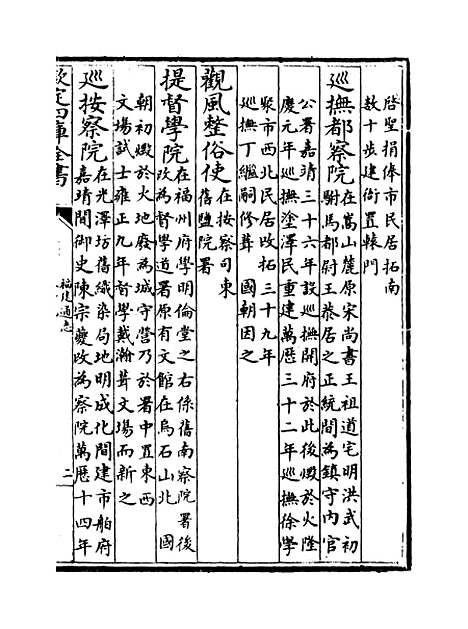 啓聖捐俸市民居拓南
數十步建衙置轅門
巡撫都察院在嵩山麓原宋尚書王祖道宅明洪武初
駙馬都尉王恭居之正統間為鎮守內官
公署嘉靖三十六年設巡撫開府於此後燬於火隆
慶元年巡撫塗澤民重建萬歷三十二年巡撫徐學
聚市西北民居改拓三十九年
巡撫丁繼嗣修葺　國朝因之
觀風整俗使在按察司東
舊鹽院署
提督學院在福州府學明倫堂之右係舊南察院署後
改為督學道署原有文館在烏石山北　國
朝初燬於火地廢為城守營乃於署中置東西
文場試士雍正九年督學戴瀚葺文場而新之
巡按察院在光澤坊舊織染局地明成化間建市舶府
嘉靖間御史陳宗夔改為察院萬歷十四年
欽定四庫全書
福建通志
二